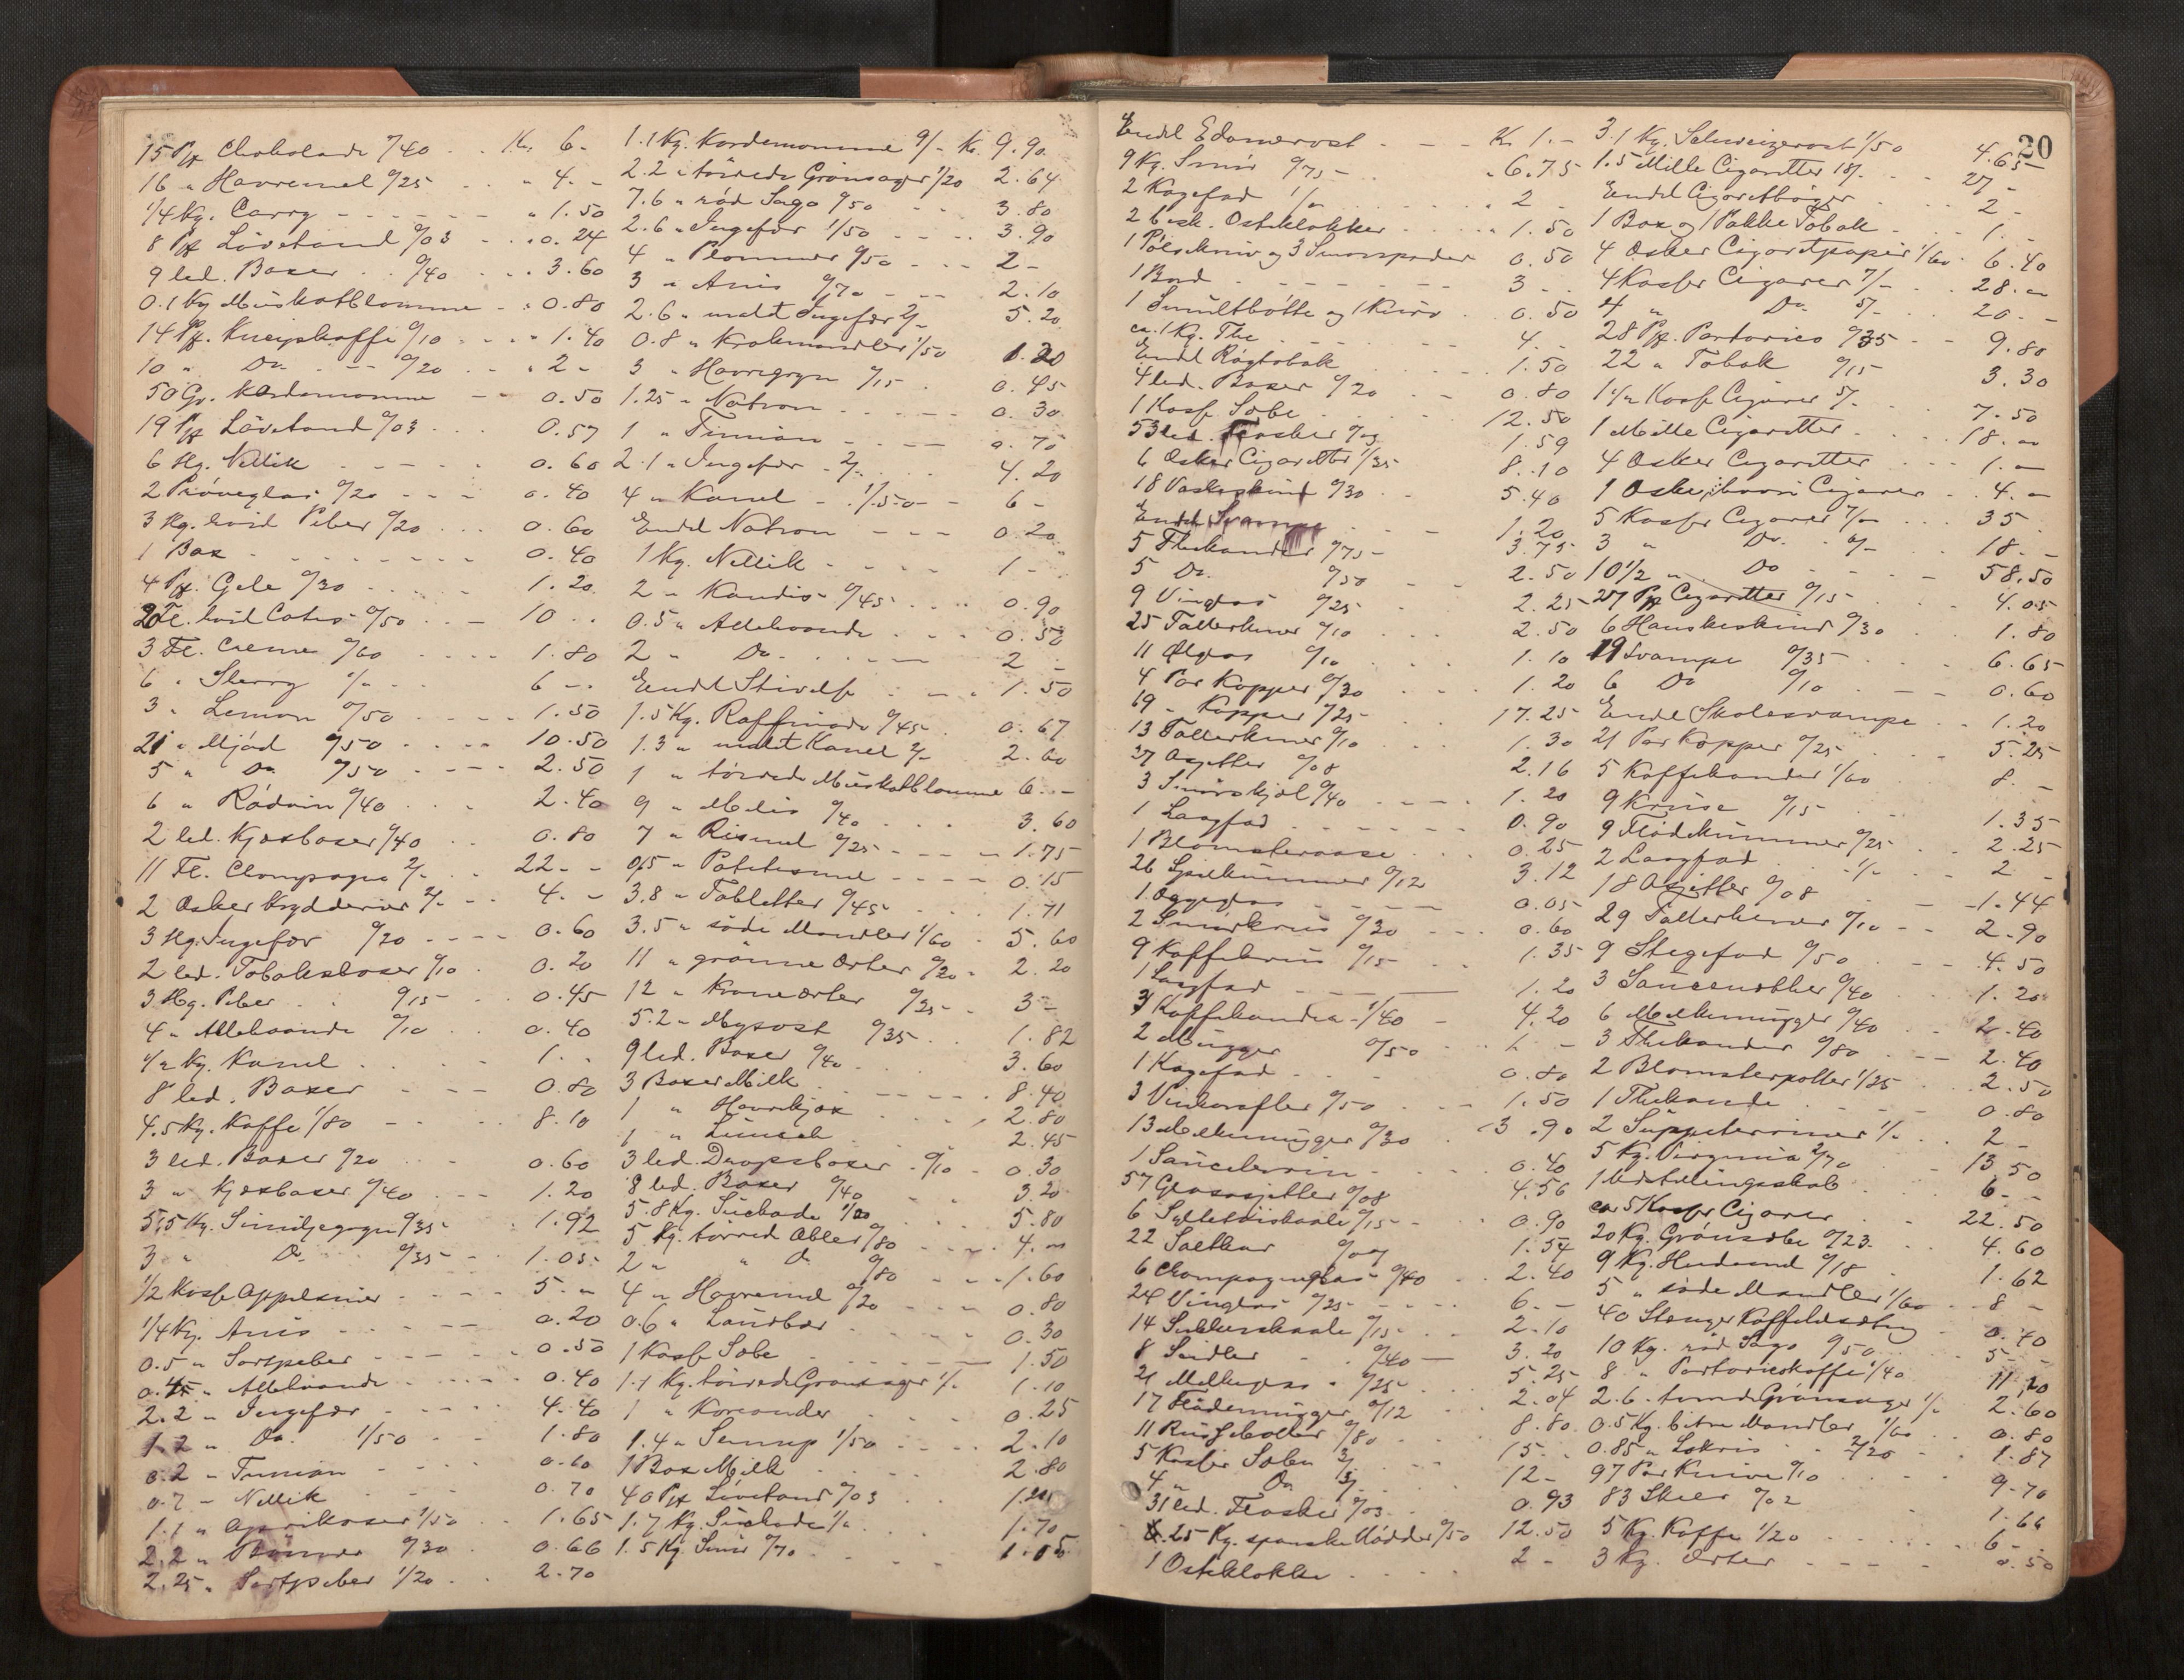 15 Pk Chokolade 0/40 . . Kr. 6. -
16 " Havremel 0/25 . . " 4. -
1/4 Kg. Carry - - - - " 1.50
8 Pk Lövetand 0/03 - . " 0.24
9 led. Boxer . . 0/40 . . . 3.60
0.1 Kg Muskatblomme - . 0.80
14 Pk. Kneipkaffe 0/10 . . . " 1.40
10 " Do. . - - 0/20 . . " 2 -
50 Gr. Kardemomme - - 0.50
19 Pk Lövetand 0/03 . . . 0.57
6 Hg. Nellik - - - - . 0.60
2 Pröveglas 0/20 - - - 0.40
3 Hg. hvid Peber 0/20 . . . 0.60
1 Box - - - - - - - 0.40
4 Pk. Gele 0/30 . . . . 1.20
20 Fl. hvid 0/50 . . - 10 . .
3 Fl. Creme 0/60 - - - - 1.80
6 " Sherry 1/- - . 6 - .
3 " Lemon 0/50 . - - - 1.50
21 " Mjód 0/50 . . . - 10.50
5 " Do 0/50 - . - - - 2.50
6 " Rödvin 0/40 . . . 2.40
2 led. Kjæxboxer 0/40 . . 0.80
11 Fl. Champagne 2/- . . 22 - -
2 Æsker Krydderier 2/- - - 4. -
3 Hg. Ingefær 0/20 - - - - 0.60
2 led. Tobaksboxer 0/10 . 0.20
3 Hg. Peber . . 0/15 - . . 0.45
4 " Allehaande 0/10 . . 0.40
1/2 Kg. Kanel . . . - 1. .
8 led. Boxer - - - 0.80
4.5 Kg. Kaffe 1/80 - - - 8.10
3 led. Boxer 0/20 . . - 0.60
3 " Kjæxboxer 0/40 . - - 1.20
5.5 Kg. Semuljegryn 0/35 - . 1.92
3 " Do. 0/35 - - 1.05
1/2 Kasse Appelsiner - - - - 5. "
1/4 Kg. Anis - - - - - 0.20
0.5 " Sortpeber - - - - - 0.50
" Allehaande - - - - 0.40
2.2 " Ingefær - - - - 4.40
1.2 " Do. 1/50 - - 1.80
0.2 " Timian - - - - 0.60
0.7 - Nellik - - - 0.70
1.1 " Aprikoser 1/50 - - 1.65
2.2 " 0/30 . 0.66
2.25 " Sortpeber 1/20 . . 2.70
1.1 Kg. Kardemomme 9/- Kr. 9.90
2.2 " törrede Grönsager 1/20 2.64
7.6 " röd Sago 0/50 - - 3.80
2.6 " Ingefær 1/50 - - - - 3.90
4 " Plommer 0/50 - - - 2 -
3 " Anis 0/70 - - - 2.10
2.6 " malt Ingefær 2/- 5.20
0.8 " Krakmandler 1/50 1.20
3 " Havregryn 0/15 . 0.45
1.25 " Natron - - - - - 0.30
1 " Timian - - - - 0.70
2.1 " Ingefær - 2/- . . . 4.20
4 " Kanel - . 1/50 - - 6 -
Endel Natron - - - 0.20
1 Kg. Nellik - - - - 1 -
2 " Kandis - 0/45 . . . 0.90
0.5 " Allehaande . . . 0.50
2 " Do. . . - - 2 -
Endel Stivelse - - - . 1.50
1.5 Kg. Raffinade 0/45 . 0.67
1.3 " malt Kanel 2/- 2.60
1 " törrede Muskatblomme 6. -
9 " Melis 0/40 . . . . 3.60
7 " Rismel 0/25 - - - - 1.75
0.5 " Potetesmel - - - - 0.15
3.8 " Tabletter 0/45 . . . 1.71
3.5 " söde Mandler 1/60 . 5.60
11 " grönne Ærter 0/20 . 2.20
12 " Kroneærter 0/25 - . 3 -
5.2 - Mysost 0/35 . . 1.82
9 led. Boxer 0/40 . . . 3.60
3 Boxer Milk - - - - - 8.40
1 " Havrekjæx . . . . 2.80
1 " Lunsch . . . . 2.45
3 led. Dropsboxer - 0/10 - 0.30
8 led. Boxer 0/40 . . . 3.20
5.8 Kg. Suckade 1/00 . . . 5.80
5 Kg. törrede Æbler 0/80 - - - 4. -
2 " " Do 0/80 - - - 1.60
4 " Havremel 0/20 . - - 0.80
0.6 " Laurbær . . - - 0.30
1 Kasse Sæbe - - - - - 1.50
1.1 Kg. törrede Grönsager 1/- . 1.10
1 " Koreander . . . . 0.25
1.4 " Sennep 1/50 . . - - 2.10
1 Box Milk . . . . 2.80
40 Pk Lövetand 0/03 . . 1.20
1.7 Kg. Suckade 1/- . . . 1.70
1.5 Kg. Smör 0/70 . . . 1.05
20
Endel Edamerost - - - Kr. 1. -
9 Kg. Smör 0/75 - . . " 6.75
2 Kagefad 1/- . . . . " 2 -
2 besk. Osteklokker - . . . " 1.50
1 Pölsekniv og 3 Smørspader 0.50
1 Bord - - - - - - 3 - .
1 Smultbötte og 1 Kurv . 0.50
ca. 1 Kg. The . . . . 4. -
Endel Rögtobak . . . - 1.50
4 led. Boxer 0/20 . . - 0.80
1 Kasse Sæbe . . . 12.50
53 led. Flasker 0/03 1.59
6 Æsker Cigaretter 1/35 8.10
18 Vaskeskind 0/30 . - 5.40
Endel Svampe . . . 1.20
5 Thekander 0/75 - . . 3.75
5 Do. 0/50 - - 2.50
9 Vinglas 0/25 - . . 2.25
25 Tallerkener 0/10 . . . 2.50
11 Ølglas 0/10 . . . 1.10
4 Par Kopper 0/30 . . . 1.20
69 - Kopper 0/25 - . . 17.25
13 Tallerkener 0/10 . . . 1.30
27 Asjetter 0/08 2.16
3 Smörskjæl 0/40 - - - - 1.20
1 Langfad . . - - - - 0.90
1 Blomstervase . . . 0.25
26 Spilkummer 0/12 3.12
1 Æggeglas - - - - 0.05
2 Smörkrus 0/30 - - - 0.60
9 Kaffekrus 0/15 - . . 1.35
1 Langfad - - - 1.20
3 Kaffekander - 1/40 - 4.20
2 Mugger 0/50 - . 1 -
1 Kagefad - - . . 0.80
3 Vinkarafler 0/50 . - - 1.50
13 Melkemugger 0/30 . - 3.90
1 Sauceterrin - - - - 0.40
57 Glasasjetter 0/08 4.56
6 Sylteiskaale 0/15 - - 0.90
22 Saltkar 0/07 . . 1.54
6 Champagneglas 0/40 . . 2.40
24 Vinglas 0/25 - - - - 6. -
14 Sukkerskaale 0/15 - . . 2.10
8 Seidler - . . 0/40 - 3.20
21 Melkeglas . 0/25 - . . 5.25
17 Flödemugger 0/12 . . . 2.04
11 0/80 . . . 8.80
5 Kasser Sæbe 3/- . . 15 - .
4 " Do 3/- . . 12 -
31 led. Flasker 0/03 . . 0.93
25 Kg. spanske Nødder 0/50 12.50
1 Osteklokke . . . . 2 -
3.1 Kg. Schweizerost 1/50 4.65
1.5 Mille Cigaretter 18/- . . . 27 -
Endel Cigaretbøger . . . 2 -
1 Box og 1 Pakke Tobak - . . 1. -
4 Æsker Cigaretpapir 1/60 . 6.40
4 Kasser Cigarer 7/- . . 28. -
4 " Do. 5/- . . 20. -
28 Pk. Portorico 0/35 - - 9.80
22 " Tobak 0/15 - . 3.30
1 1/2 Kasse Cigarer 5/- . . 7.50
1 Mille Cigaretter - . . 18. -
4 Æsker Cigaretter . - - - 1. -
1 Æske Cigarer - . 4. -
5 Kasser Cigarer 7/- . . . 35 .
3 " Do. - 6/- . . 18. -
10 1/2 " Do - - - 58.50
27 Pk Cigaretter 0/15 - . . 4.05
6 Hanskeskind 0/30 . . . 1.80
19 Svampe 0/35 - . . . 6.65
6 Do 0/10 . - - 0.60
Endel Skolesvampe - . 1.20
21 Par Kopper 0/25 . . . 5.25
5 Kaffekander 1/60 . . 8. -
9 Kruse 0/15 - . . 1.35
9 Flödekummer 0/25 . . 2.25
2 Langfad . . 1/- . - 2 -
18 Asjetter 0/08 - - 1.44
29 Tallerkener 0/10 - - 2.90
9 Stegefad 0/50 . - - 4.50
3 Saucenebber 0/40 . . 1.20
6 Melkemugger 0/40 . . 2.40
3 Thekander 0/80 . - - 2.40
2 Blomsterpotter 1/25 . . 2.50
1 Thekande - - - 0.80
2 Suppeterriner 1/- . . 2 -
5 Kg. Virginia 2/70 - 13.50
1 Udstillingsskab - . 6 - .
ca 5 Kasser Cigarer . . 22.50
20 Kg. Grönsæbe 0/23 . . 4.60
9 Kg. Hvedemel 0/18 . 1.62
5 " söde Mandler 1/60 - . 8 -
40 Stænger 0.40
10 Kg. röd Sago 0/50 . . 5 -
8 " Portoricokaffe 1/40 11.20
2.6 . törrede Grönsager 1/- 2.60
0.5 Kg. bitre Mandler 1/60 0.80
0.85 " Lakris . . 2/20 . 1.87
97 Par Knive 0/10 . . . 9.70
83 Skeer 0/02 1.66
5 Kg. Kaffe 1/20 . . . . 6 -
3 Kg. Ærter - - - - 0.50